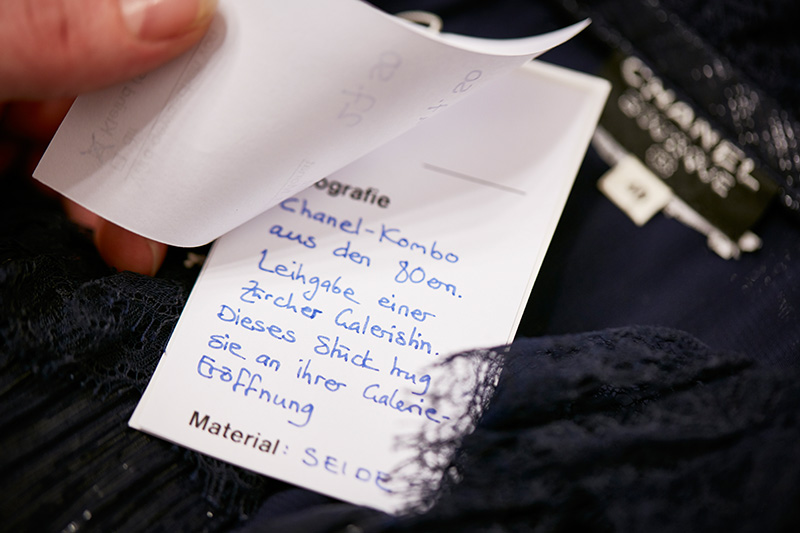 ografie
Chanel-Kombo
aus den 80ern.
Leihgabe einer
Zürcher Galeristin.
Dieses Stück trug
sie an ihrer Galerie-
Eröffnung
Material: SEIDE
CHANEL